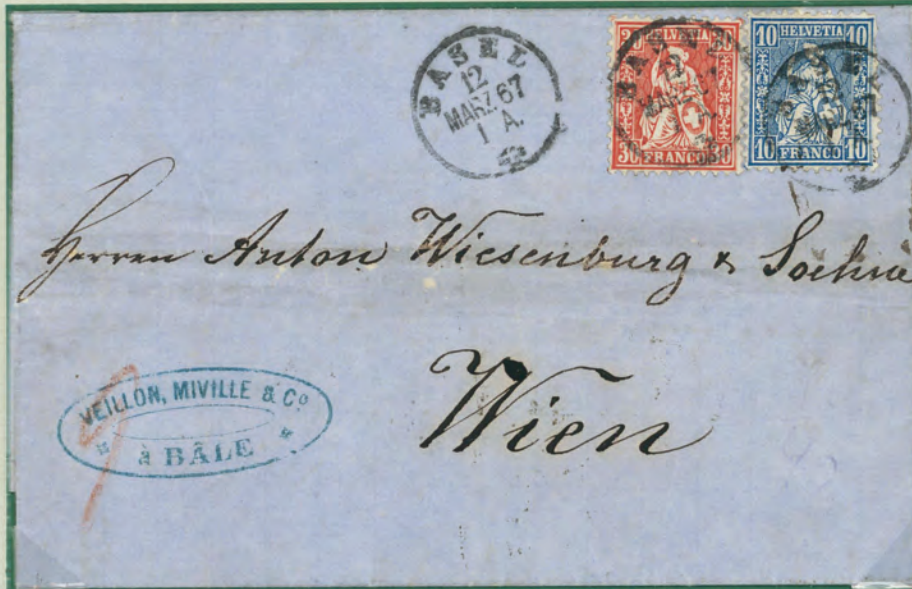 BASEL
12
MARZ 67
1 A.
30 HELVETIA 30
30 FRANCO 30
10 HELVETIA 10
10 FRANCO 10
Herren Anton Wiesenburg & Soehne
Wien
VEILLON, MIVILLE & Cº
à BÂLE